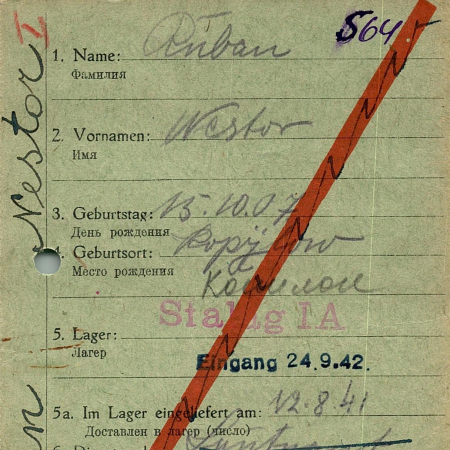 V
564
1. Name: Ruban
Фамилия
2. Vornamen: Nestor
Имя
3. Geburtstag: 15.10.07
День рождения
4. Geburtsort:
Место рождения
5. Lager: Stalag IA
Лагерь
Eingang 24.9.42.
5a. Im Lager eingeliefert am: 12.8.41
Доставлен в лагерь (число)
Nestor